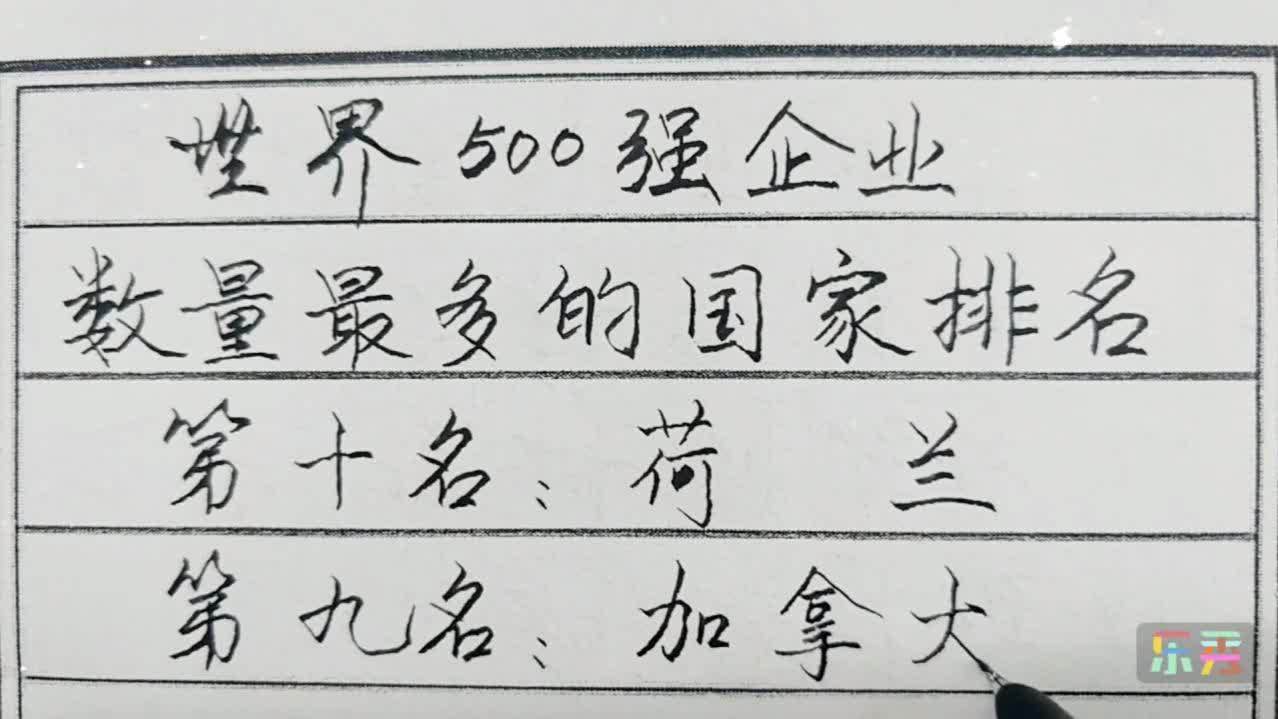 世界500强企业
数量最多的国家排名
第十名：荷 兰
第九名：加拿大
乐秀